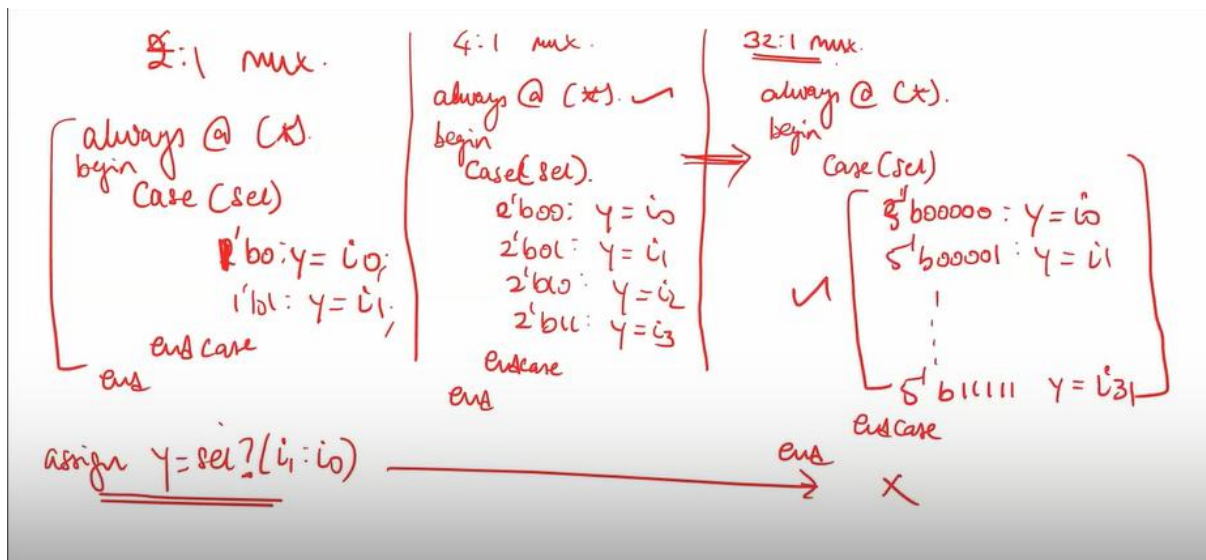 2:1 mux.
always @ (*).
begin
case (sel)
1'b0: y = i0;
1'b1: y = i1;
endcase
end
assign y = sel?(i1:i0)
4:1 mux.
always @ (*).
begin
case(sel).
2'b00: y = i0
2'b01: y = i1
2'b10: y = i2
2'b11: y = i3
endcase
end
32:1 mux.
always @ (*).
begin
case (sel)
5'b00000: y = i0
5'b00001: y = i1
5'b11111 y = i31
endcase
end
X